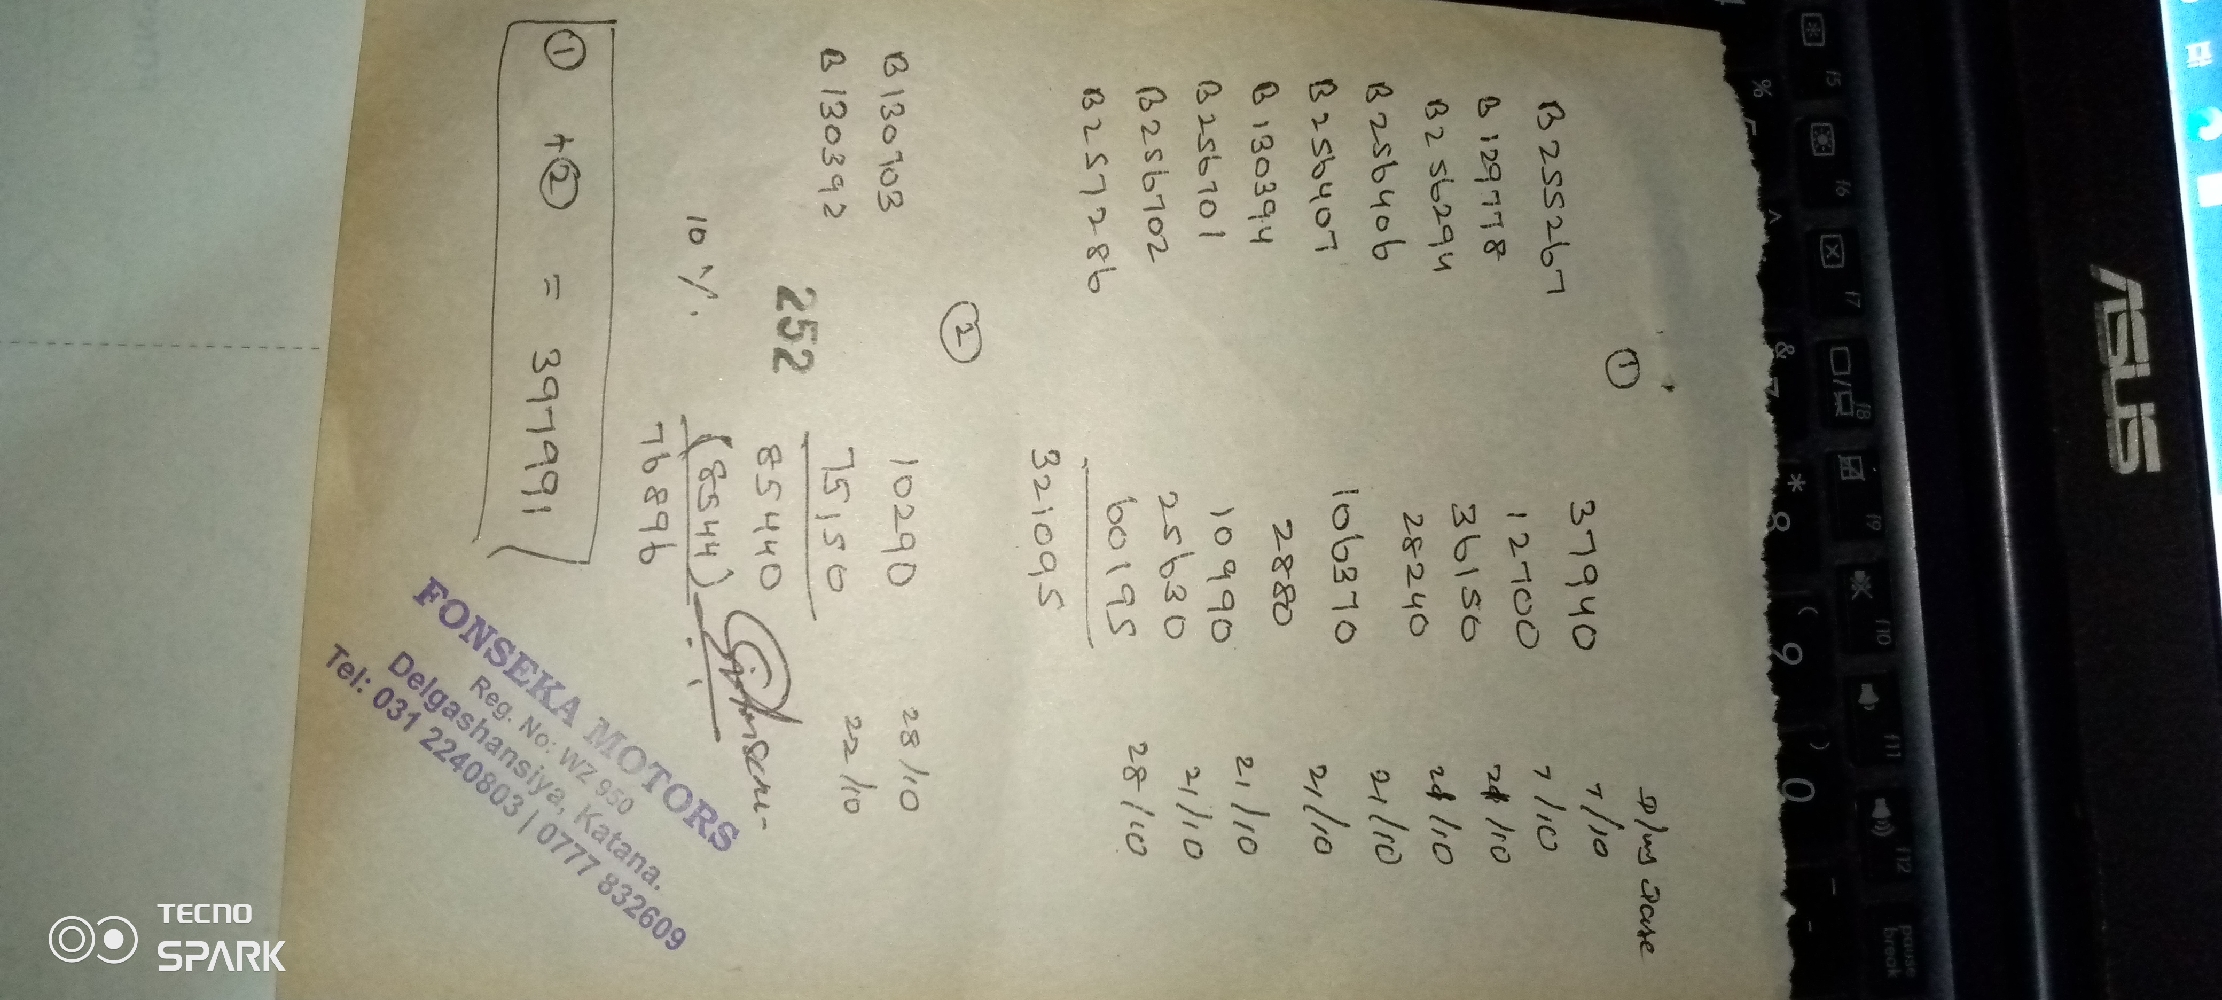 ①
D/us Date
B255267 37940 7/10
B129778 12700 7/10
B256294 36150 21/10
B256406 28240 21/10
B256407 106370 21/10
B130394 2880 21/10
B256701 10990 21/10
B256702 25630 21/10
B257286 60195 28/10
321095
②
B130703 10290 28/10
B130392 75150 22/10
252 85440
10%. (8544)
76896
① + ② = 397991
FONSEKA MOTORS
Reg. No: WZ 950
Delgashansiya, Katana.
Tel: 031 2240803 | 0777 832609
ASUS
f5 f6 f7 f8 f9 f10 f11 f12 pause break
% ^ & 7 * 8 ( 9 ) 0 -
TECNO
SPARK